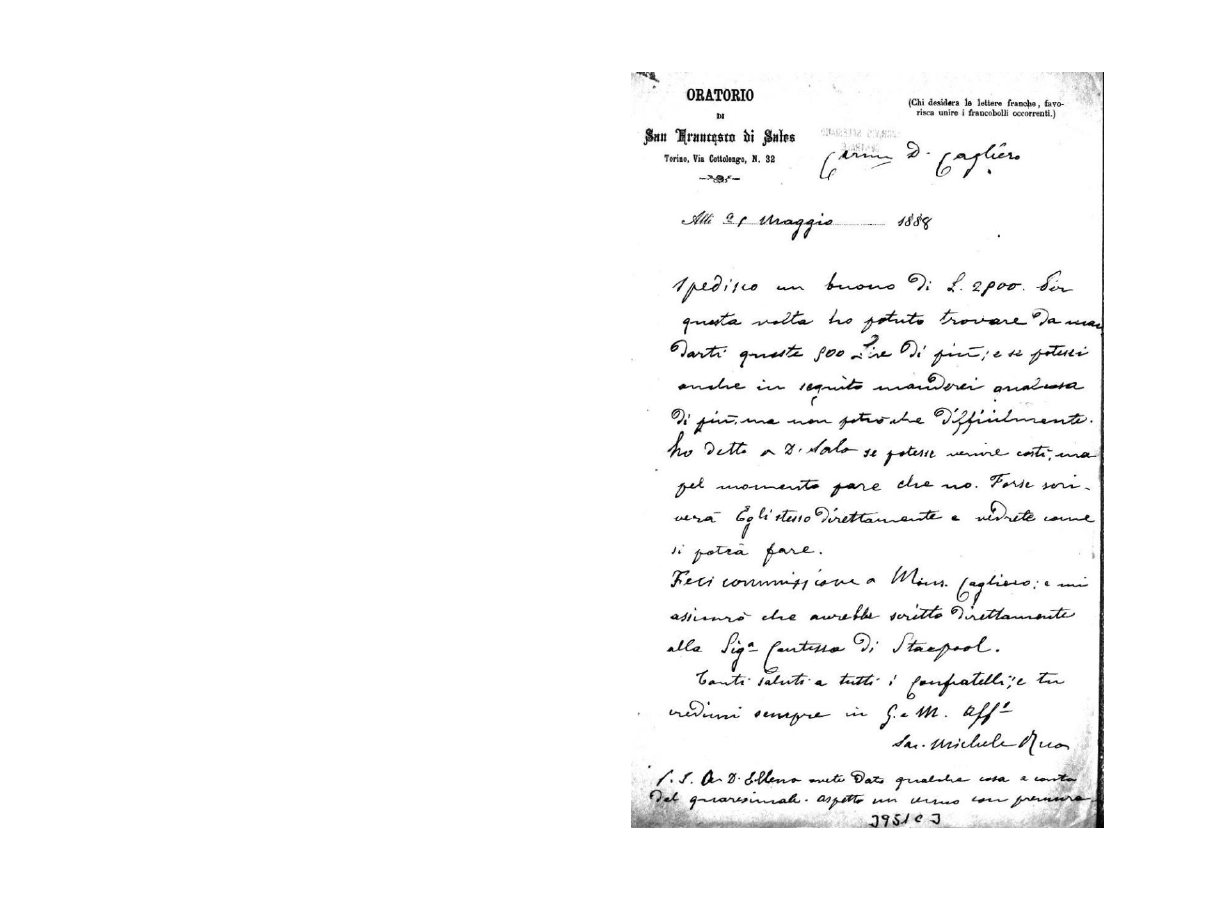 ORATORIO
DI
San Francesco di Sales
Torino, Via Cottolengo, N. 32
(Chi desidera la lettere franche, favo-
risca unire i francobolli occorrenti.)
Carmo D. Cagliero
Alli Maggio 1888
Spedisco un buono di L. 2500. Per
questa volta ho potuto trovare da man
darti queste 500 Lire di più; e se potessi
anche in seguito manderei qualcosa
di più, ma non potrò che difficilmente.
Ho detto a D. se potesse venire costì, ma
pel momento pare che no. Forse scri-
verà Egli stesso direttamente e vedrete come
si potrà fare.
Feci commissione a Mons. Cagliero; e mi
assicurò che avrebbe scritto direttamente
alla Sigª Contessa di Stacpool.
Tanti saluti a tutti i Confratelli; e tu
credimi sempre in G. e M. Aff.
Sac. Michele Rua
P. S. A D. Elleno avete dato qualche cosa a conto
del quaresimale. Aspetto un cenno con premura.